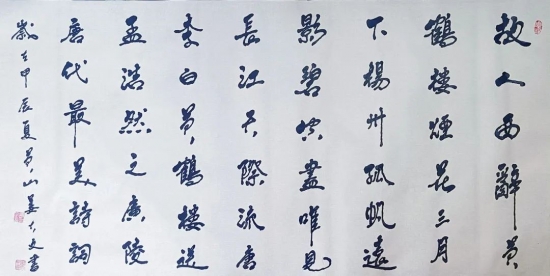 故人西辭黄
鶴樓煙花三月
下楊州孤帆遠
影碧空盡唯見
長江天際流唐
李白黄鶴樓送
孟浩然之廣陵
唐代最美詩詞
歲在甲辰夏黄山姜大文書